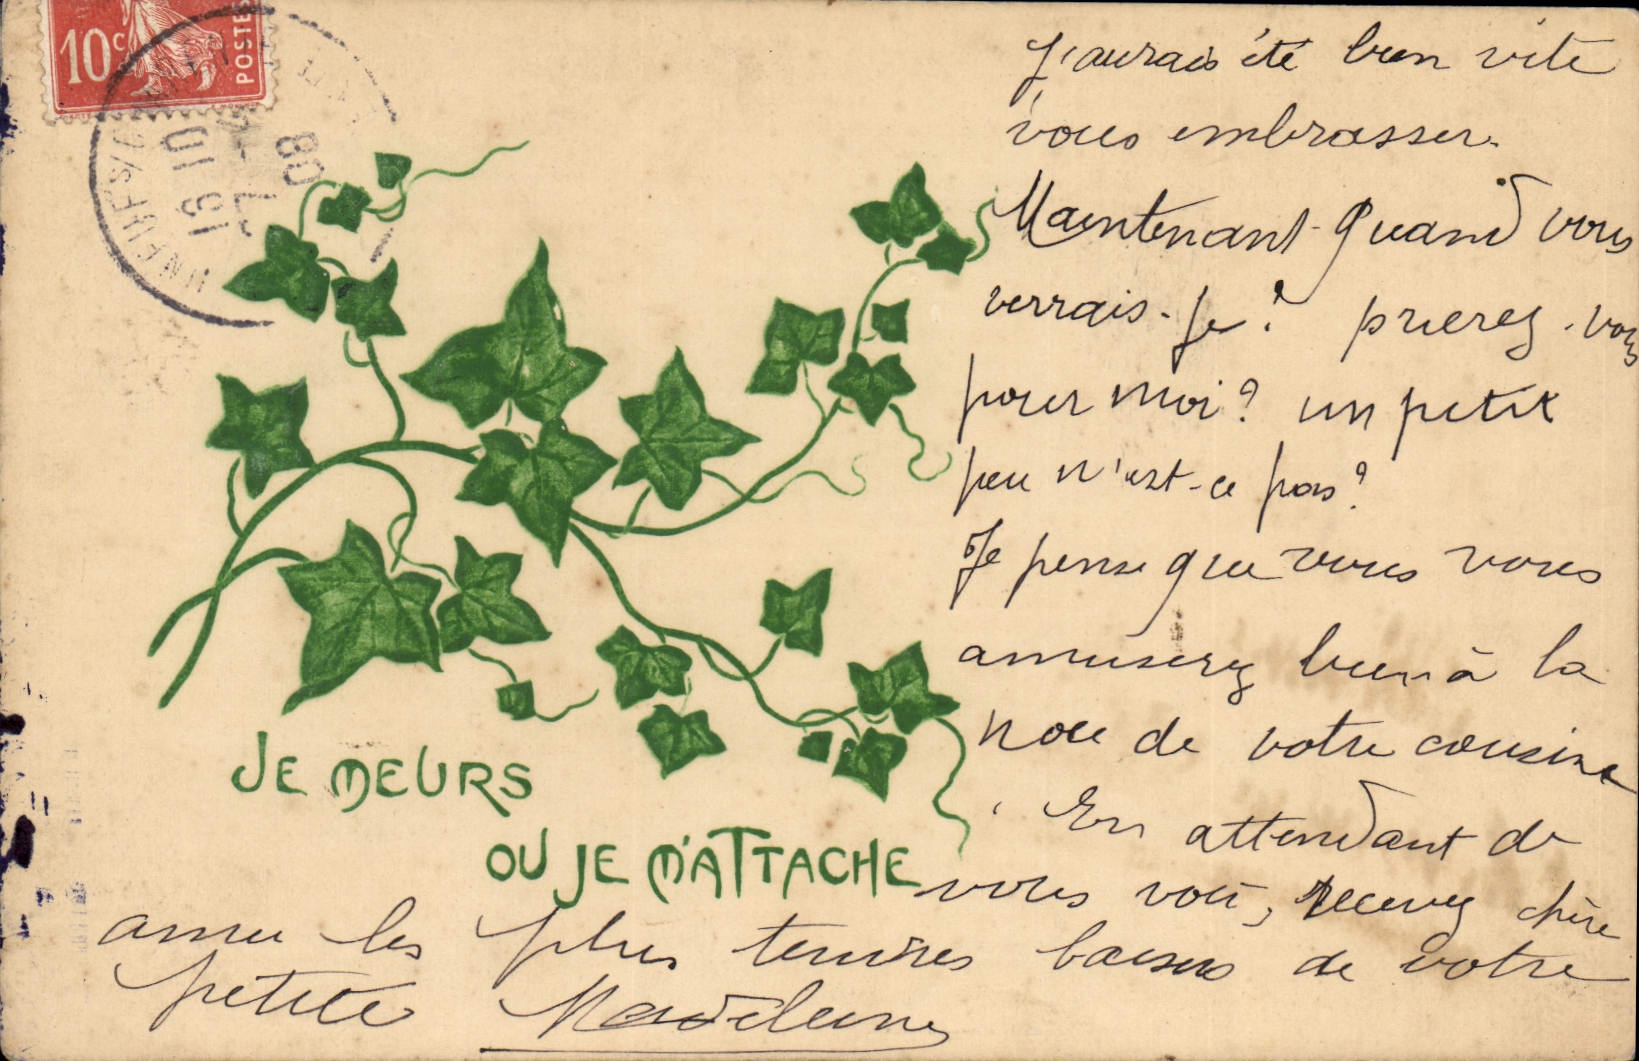 10c
POSTES
16 10
7 - 7
08
J'aurais été bien vite
vous embrasser.
Maintenant quand vous
verrais-je? prierez-vous
pour moi? un petit
peu n'est-ce pas?
Je pense que vous vous
amuserez bien à la
noce de votre cousine
En attendant de
JE MEURS
OU JE M'ATTACHE
vous voir, recevez chère
amie les plus tendres baisers de votre
petite Madeleine